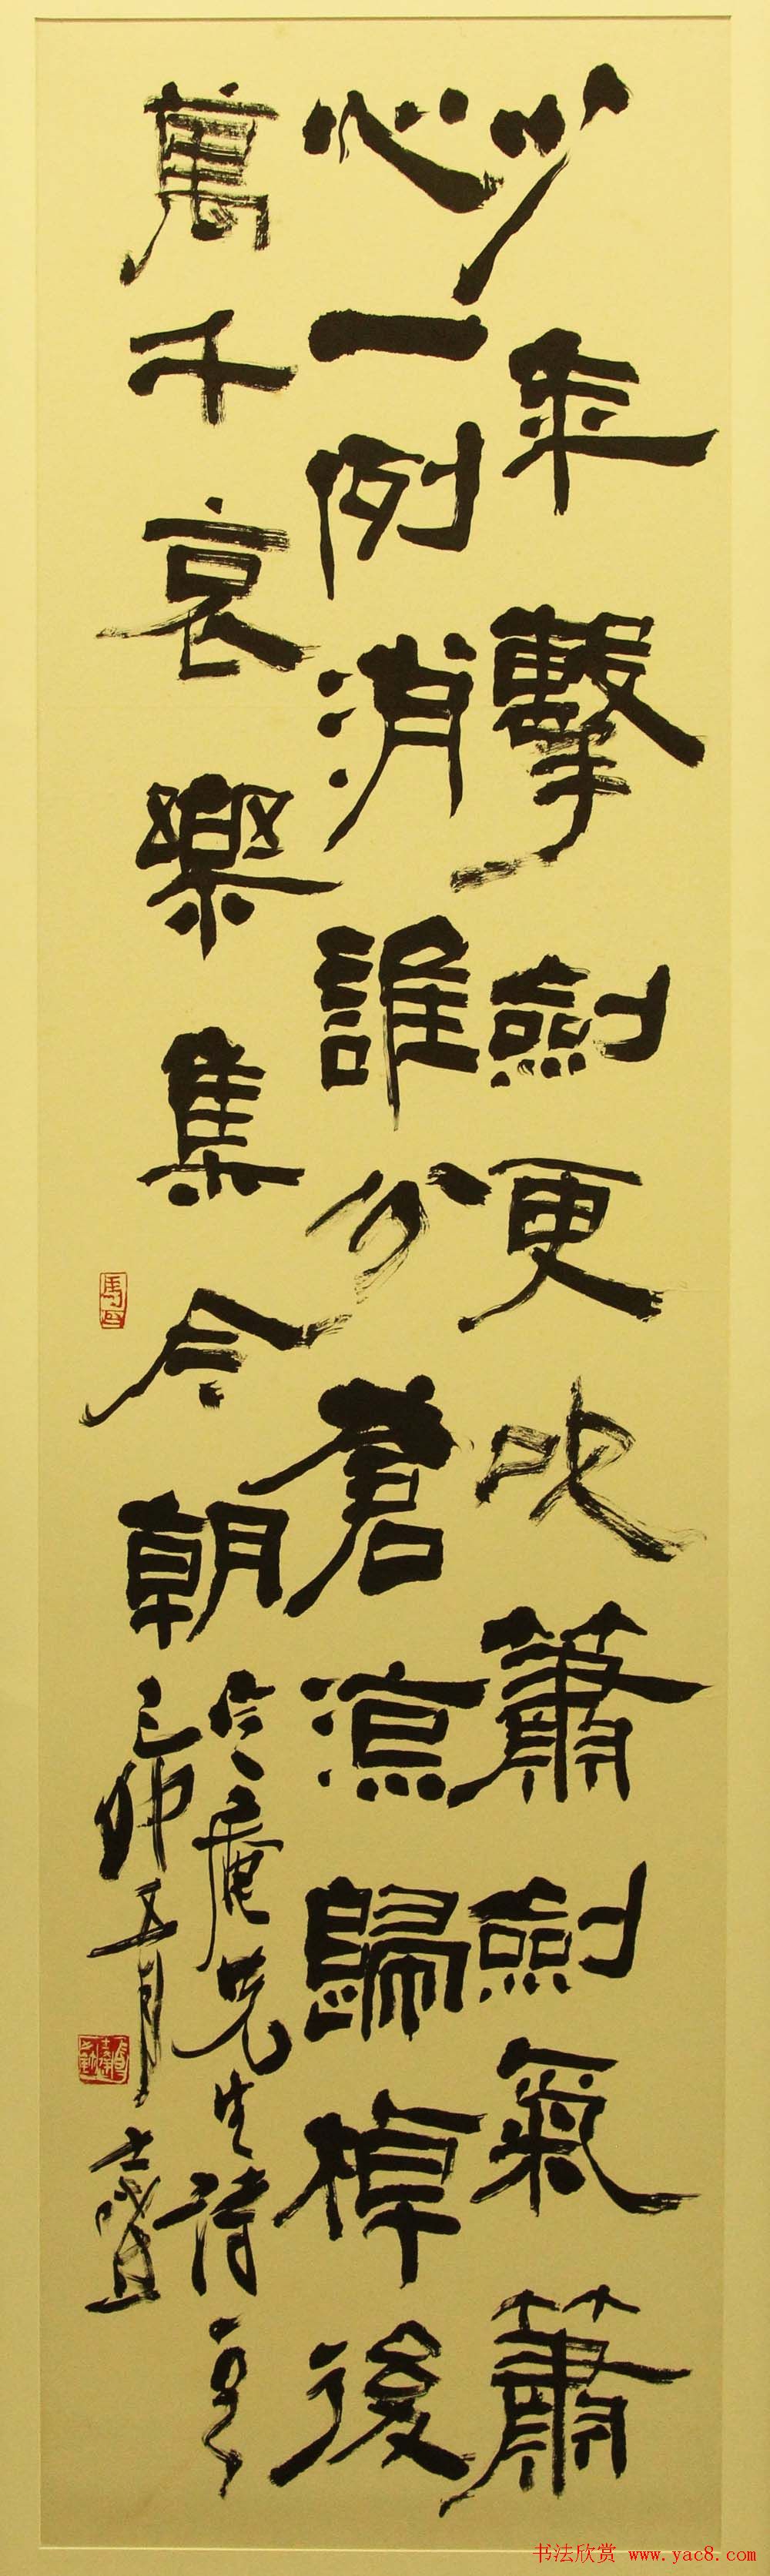 少年擊劍更吹簫劍氣簫
心一例消誰分蒼涼歸棹後
萬千哀樂集今朝
定庵先生詩
己卯五月
书法欣赏 www.yac8.com